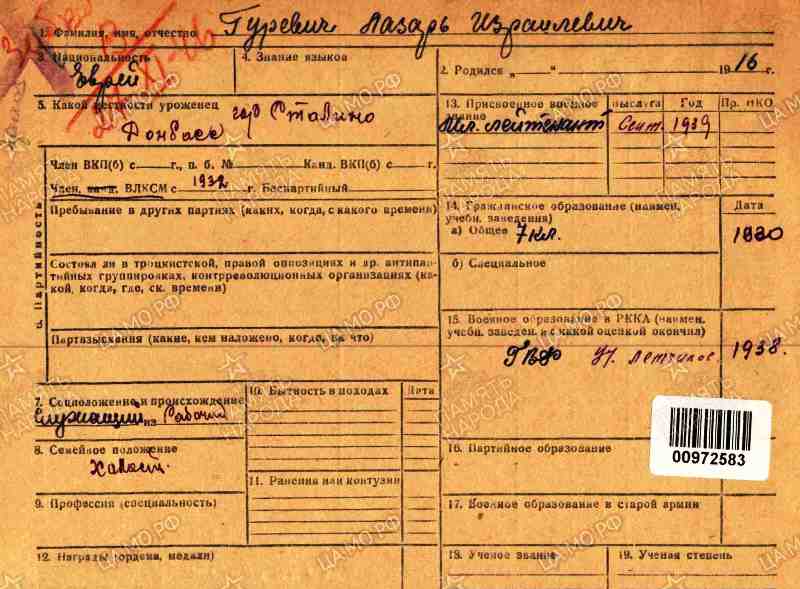 1. Фамилия, имя, отчество Гуревич Лазарь Израилевич
3. Национальность
Еврей
4. Знание языков
2. Родился „ — “ 1916 г.
5. Какой местности уроженец гор Сталино
Донбасс
13. Присвоенное военное звание
Выслуга
Год
Пр. НКО
Мл. лейтенант Сент. 1939
6. Партийность
Член ВКП(б) с г., п. б. № Канд. ВКП(б) с г.
Член, канд. ВЛКСМ с 1932 г. Беспартийный
Пребывание в других партиях (каких, когда, с какого времени)
Состоял ли в троцкистской, правой оппозициях и др. антипар-
тийных группировках, контрреволюционных организациях (ка-
кой, когда, где, ск. времени)
Партвзыскания (какие, кем наложено, когда, за что)
14. Гражданское образование (наимен.
учебн. заведения)
Дата
а) Общее 7 кл. 1930
б) Специальное
15. Военное образование в РККА (наимен.
учебн. заведен. и с какой оценкой окончил)
ГВФ 1938.
7. Соцположение и происхождение
Служащий из Рабочий
8. Семейное положение
Холост.
9. Профессия (специальность)
10. Бытность в походах
Дата
11. Ранения или контузии
16. Партийное образование
00972583
17. Военное образование в старой армии
12. Награды (ордена, медали)
18. Ученое звание
19. Ученая степень
ЦАМО.РФ
ПАМЯТЬ
НАРОДА